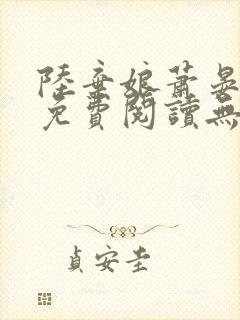 陸棄娘蕭晏
免費閱讀無
貞安圭